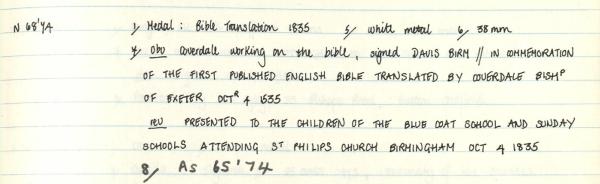 N 68'74 1/ Medal: Bible Translation 1835 5/ white metal 6/ 38mm
7/ obv Coverdale working on the bible, signed DAVIS BIRM // IN COMMEMORATION
OF THE FIRST PUBLISHED ENGLISH BIBLE TRANSLATED BY COVERDALE BISHP
OF EXETER OCTR 4 1535
rev PRESENTED TO THE CHILDREN OF THE BLUE COAT SCHOOL AND SUNDAY
SCHOOLS ATTENDING ST PHILIPS CHURCH BIRMINGHAM OCT 4 1835
8/ AS 65'74